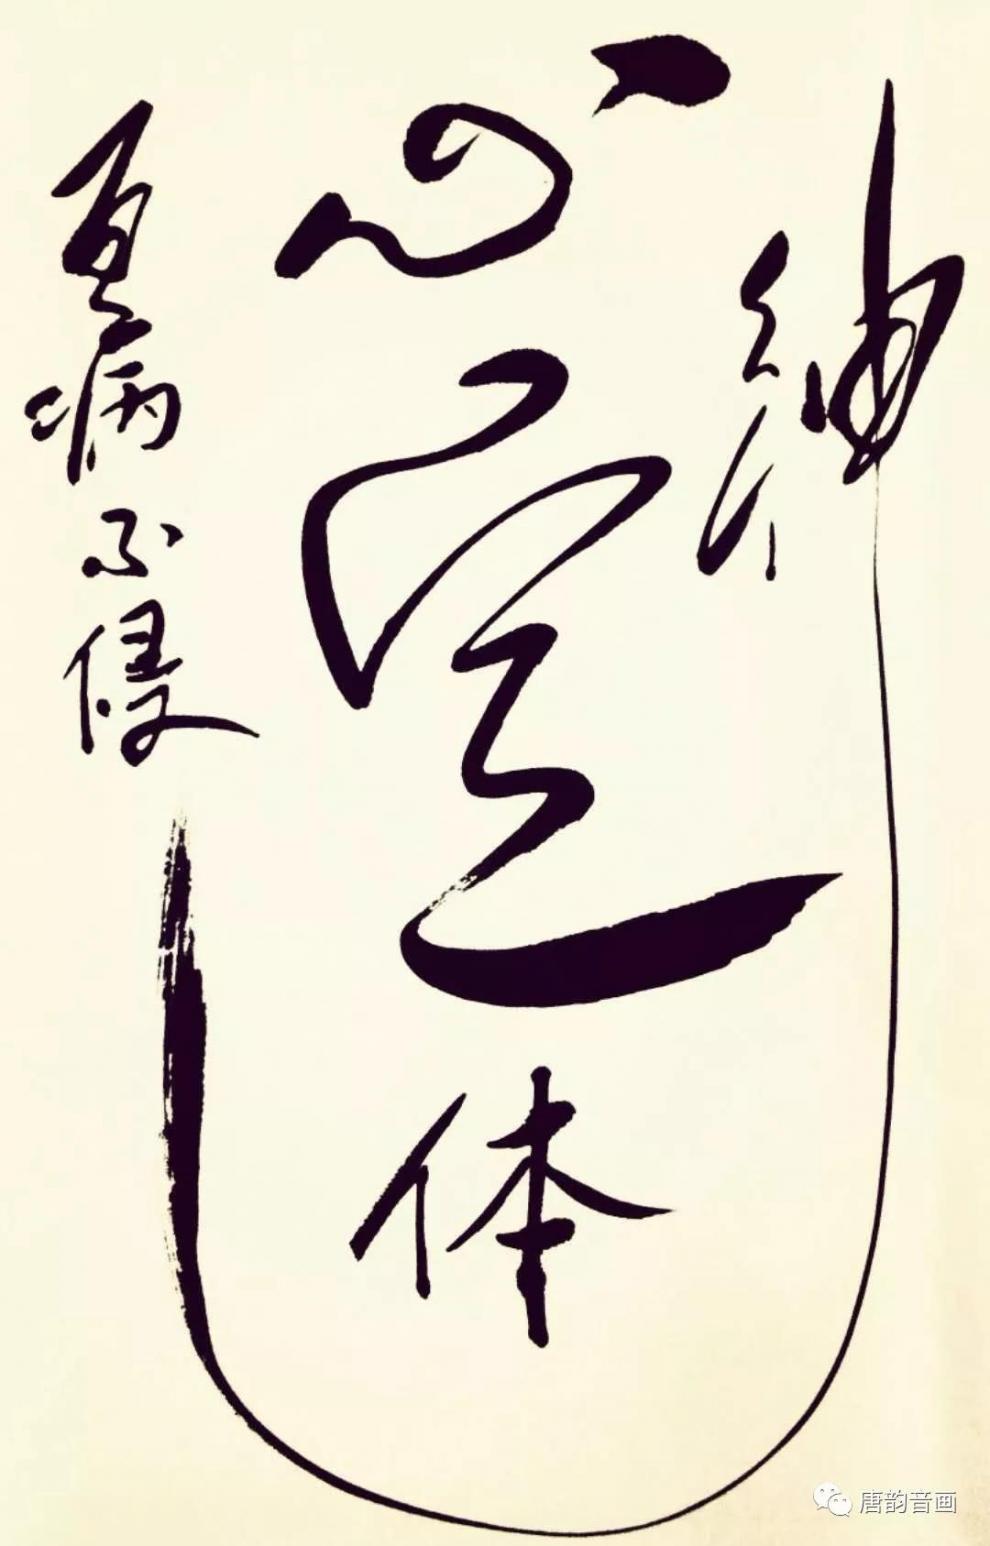 神
心空体
百病不侵
唐韵音画